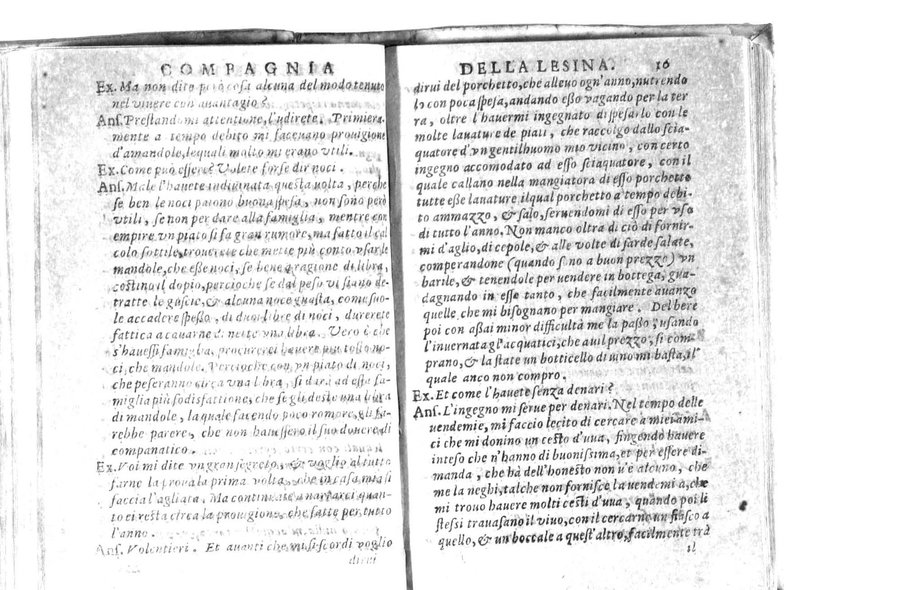 COMPAGNIA
Ex. Ma non dite però cosa alcuna del modo tenuto
nel viuere con auantagio?
Ans. Prestandomi attentione, l'udirete. Primiera-
mente a tempo debito mi faceuano prouigione
d'amandole, lequali molto mi erano vtili.
Ex. Come può essere? Volete forse dir noci.
Ans. Male l'hauete indiuinata questa volta, perche
se ben le noci paiono buona spesa, non sono però
vtili, se non per dare alla famiglia, mentre con
empire vn piato si fa gran rumore, ma fatto il cal
colo sottile, trouerete che mette più conto vsar le
mandole, che esse noci, se bene a ragione di libra,
costino il dopio, percioche se dal peso vi siano de-
tratte le guscie, & alcuna noce guasta, come suo-
le accadere spesso, di due libre di noci, durerete
fattica a cauarne di nette vna libra. Vero è che
s'hauessi famiglia, procurerei hauere più tosto no-
ci, che mandole. Percioche con vn piato di noci,
che peseranno circa vna libra, si darà ad essa fa-
miglia più sodisfattione, che se gli deste una libra
di mandole, la quale facendo poco romore, gli fa-
rebbe parere, che non hauessero il suo douere di
companatico.
Ex. Voi mi dite vn gran segreto, & voglio al tutto
farne la proua la prima volta, che in casa mia si
faccia l'agliata. Ma continuate a narrarci quan-
to ci resta circa la prouigione, che fatte per tutto
l'anno.
Ans. Volentieri. Et auanti che mi si scordi voglio
dirui
DELLA LESINA. 16
dirui del porchetto, che alleuo ogn'anno, nutrendo
lo con poca spesa, andando esso vagando per la ter
ra, oltre l'hauermi ingegnato di spesarlo con le
molte lauature de piati, che raccolgo dallo scia-
quatore d'vn gentilhuomo mio vicino, con certo
ingegno accomodato ad esso sciaquatore, con il
quale callano nella mangiatora di esso porchetto
tutte esse lauature, il qual porchetto a tempo debi-
to ammazzo, & salo, seruendomi di esso per vso
di tutto l'anno. Non manco oltra di ciò di fornir-
mi d'aglio, di cepole, & alle volte di sarde salate,
comperandone (quando sono a buon prezzo) vn
barile, & tenendole per uendere in bottega, gua-
dagnando in esse tanto, che facilmente auanzo
quelle, che mi bisognano per mangiare. Del bere
poi con assai minor difficultà me la passo, usando
l'inuernata gl'acquatici, che a uil prezzo, si com-
prano, & la state un botticello di uino mi basta, il
quale anco non compro.
Ex. Et come l'hauete senza denari?
Ans. L'ingegno mi serue per denari. Nel tempo delle
uendemie, mi faccio lecito di cercare a miei ami-
ci che mi donino un cesto d'uua, fingendo hauere
inteso che n'hanno di buonissima, et per essere di-
manda, che hà dell'honesto non u'è alcuno, che
me la neghi, talche non fornisce la uendemia, che
mi trouo hauere molti cesti d'uua, quando poi li
stessi trauasano il viuo, con il cercarne un fiasco a
quello, & un boccale a quest'altro, facilmente trà
il